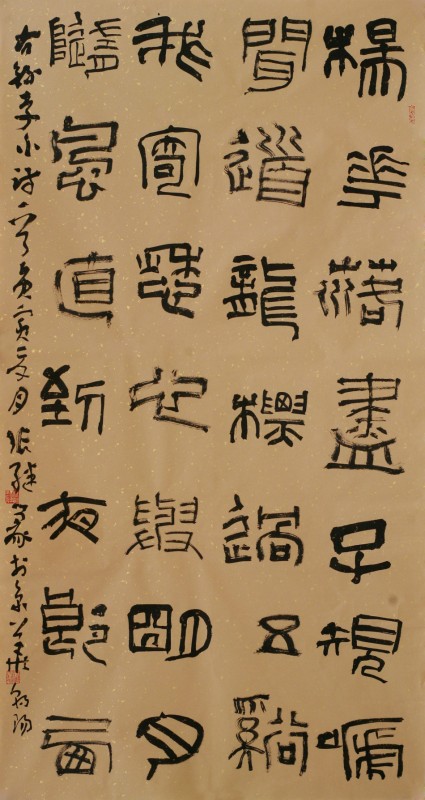 楊花落盡子規嗁
聞道龍標過五谿
我寄愁心與明月
隨風直到夜郎西
右錄李詩一首庚寅夏月張繼篆於京